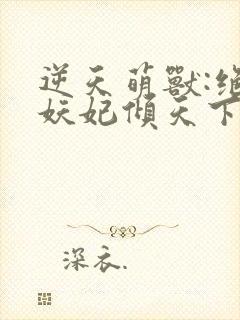 逆天萌獸:絕
妖妃傾天下
深衣.